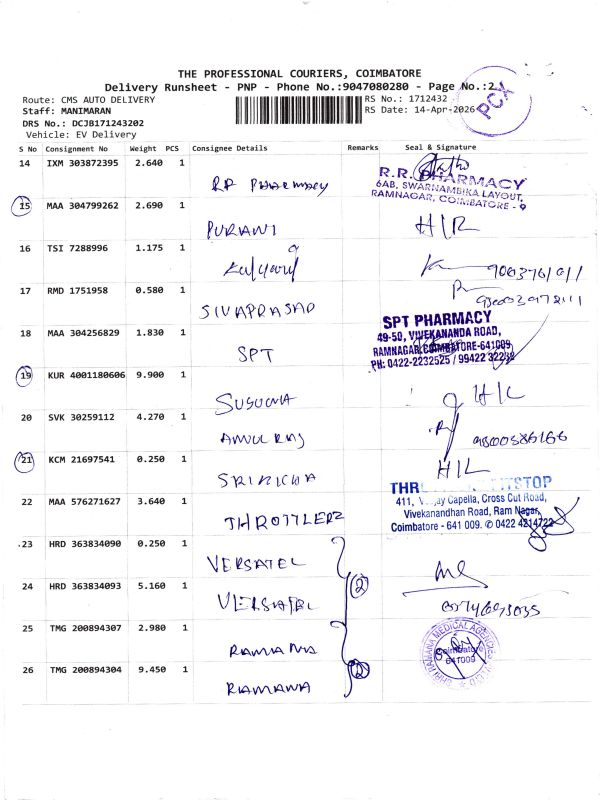 THE PROFESSIONAL COURIERS, COIMBATORE
Delivery Runsheet - PNP - Phone No.:9047080280 - Page No.:2
Route: CMS AUTO DELIVERY
RS No.: 1712432
PCX
Staff: MANIMARAN
RS Date: 14-Apr-2026
DRS No.: DCJB171243202
Vehicle: EV Delivery
S No Consignment No Weight PCS Consignee Details Remarks Seal & Signature
14 IXM 303872395 2.640 1
RR PHARMACY
R.R. PHARMACY
6AB, SWARNAMBIKA LAYOUT,
RAMNAGAR, COIMBATORE - 9
15 MAA 304799262 2.690 1
PURANI
16 TSI 7288996 1.175 1
17 RMD 1751958 0.580 1
SIVAPRASAD
18 MAA 304256829 1.830 1
SPT
SPT PHARMACY
49-50, VIVEKANANDA ROAD,
RAMNAGAR, COIMBATORE-641009
PH: 0422-2232525 / 99422 32238
19 KUR 4001180606 9.900 1
20 SVK 30259112 4.270 1
AMUL RAJ
9800586166
21 KCM 21697541 0.250 1
H/L
22 MAA 576271627 3.640 1
THROTTLERZ
PITSTOP
411, Capella, Cross Cut Road,
Vivekanandhan Road, Ram Nagar,
Coimbatore - 641 009. ✆ 0422 4214722
23 HRD 363834090 0.250 1
VERSATEL
24 HRD 363834093 5.160 1
VERSATEL
2
25 TMG 200894307 2.980 1
RAMANA
26 TMG 200894304 9.450 1
RAMANA
2
SHRI RAMANA MEDICAL AGENCIES
Coimbatore
641009